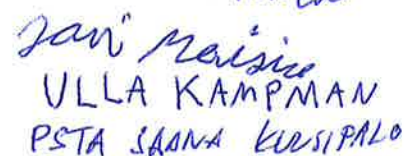 Jari
ULLA KAMPMAN
PSTA SAANA KURSIPALO